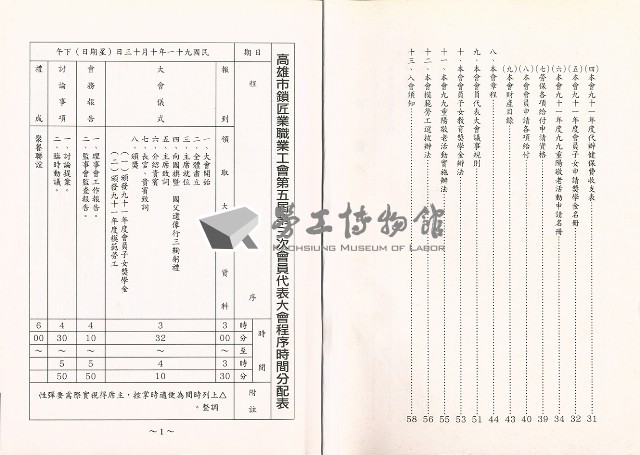 (四)本會九十一年度代辦健保費收支表……31
(五)本會九十一年度會員子女申請獎學金名冊……32
(六)本會九十一年度九九重陽敬老活動申請名冊……34
(七)勞保各項給付申請資格……39
(八)本會會員申請各項給付……40
(九)本會財產目錄……43
八、本會章程……44
九、本會會員代表大會議事規則……51
十、本會會員子女教育獎學金辦法……53
十一、本會九九重陽敬老活動實施辦法……55
十二、本會模範勞工選拔辦法……56
十三、入會須知……58
高雄市鎖匠業職業工會第五屆第 次會員代表大會程序時間分配表
日期 民國九十一年十月十三日(星期日)下午
程序 時間 附註
時 分 至 時 分
報到 領取大 資料 3 00 ~ 3 30
大會儀式
一、大會開始
二、全體肅立
三、主席就位
四、向國旗暨 國父遺像行三鞠躬禮
五、主席致詞
六、介紹貴賓
七、長官、貴賓致詞
八、頒獎
(一)頒發九十一年度會員子女獎學金
(二)頒發九十一年度模範勞工
3 32 ~ 4 10
會務報告
一、理事會工作報告。
二、監事會監查報告。
4 10 ~ 5 50
討論事項
一、討論提案。
二、臨時動議。
4 30 ~ 5 50
禮成 聚餐聯誼 6 00 ~
△上列時間為便適時掌控,主席得視實際需要彈性調整。
~1~
勞工博物館
KAOHSIUNG MUSEUM OF LABOR